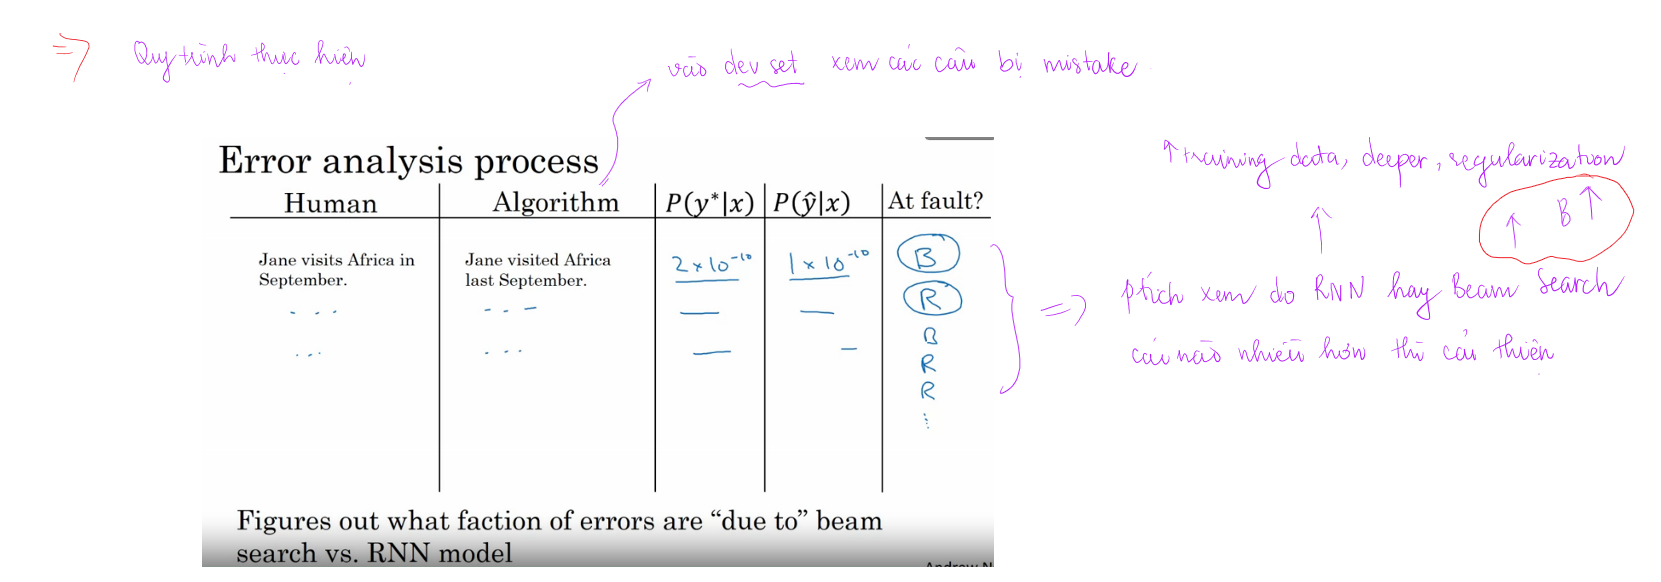 => Quy trình thực hiện
vào dev set xem các câu bị mistake
Error analysis process
Human Algorithm P(y*|x) P(ŷ|x) At fault?
Jane visits Africa in September.
Jane visited Africa last September.
2 x 10⁻¹⁰ 1 x 10⁻¹⁰ B
... ... — — R
... ... — — B
R
R
⋮
Figures out what faction of errors are “due to” beam
search vs. RNN model
↑ training data, deeper, regularization
↑ ↑ B ↑
=> ptích xem do RNN hay Beam Search
cái nào nhiều hơn thì cải thiện